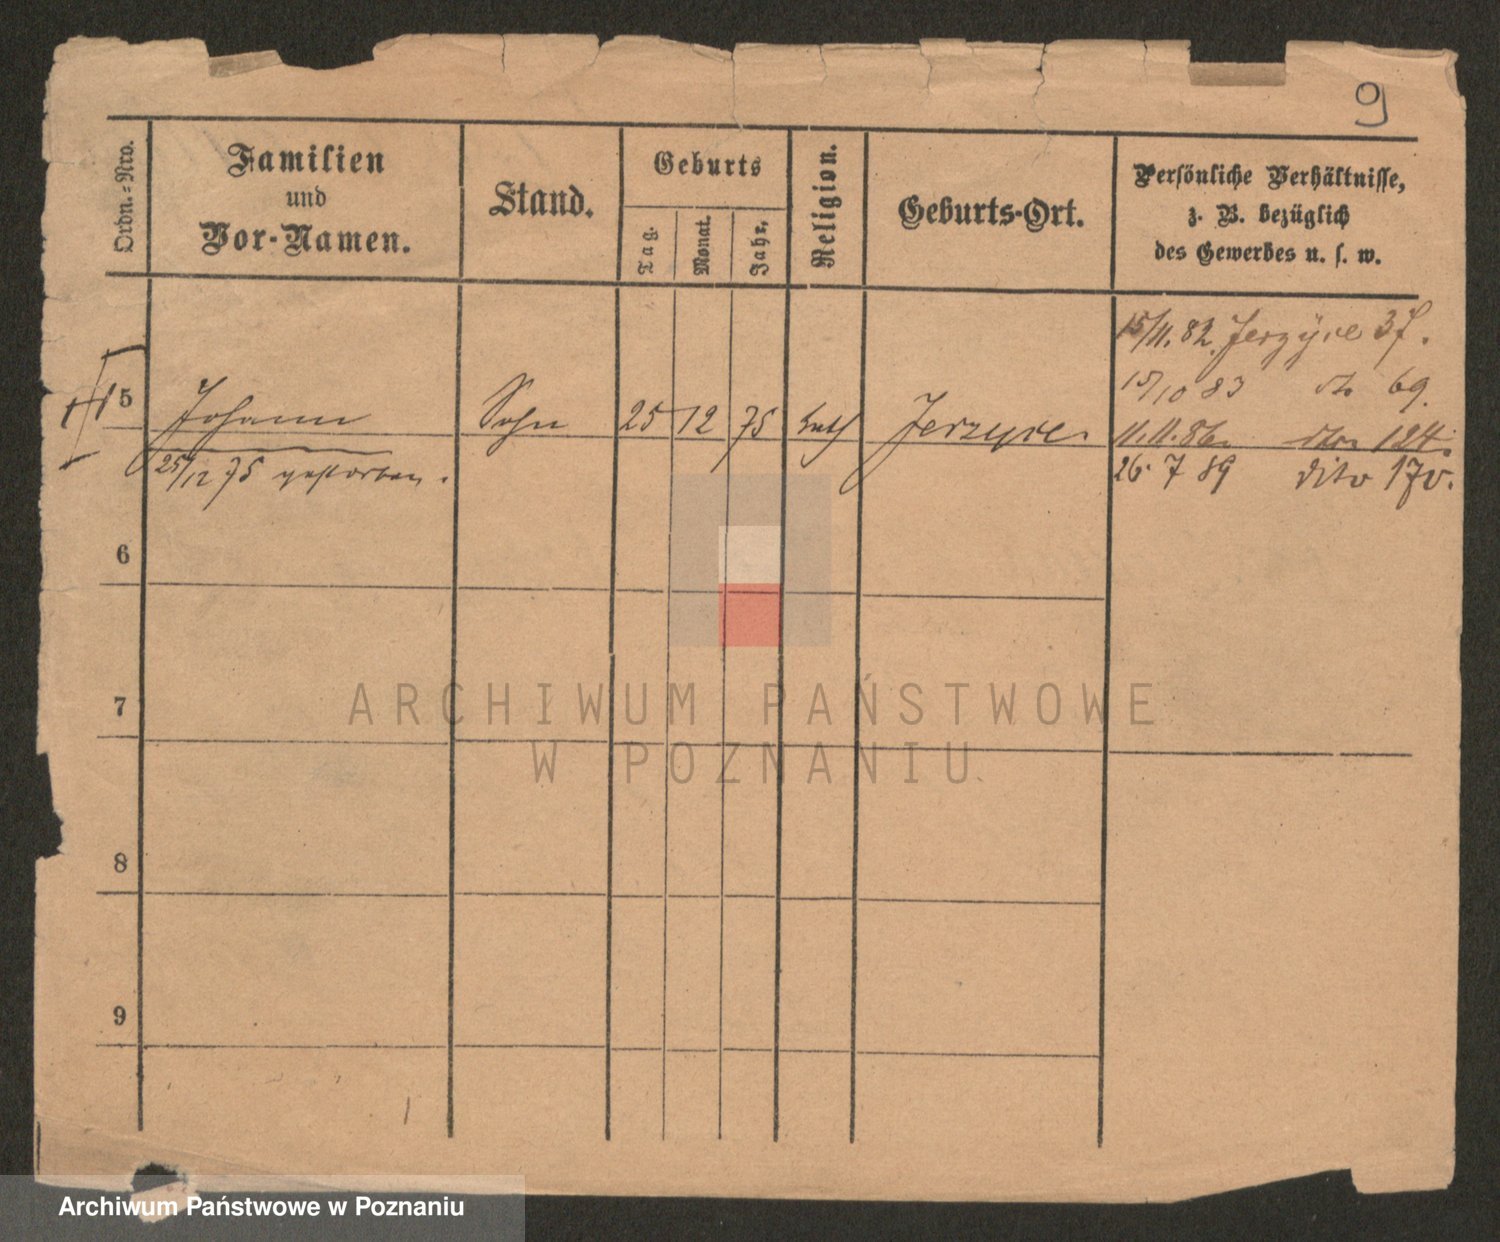 9
Ordn.-Nro.
Familien
und
Vor-Namen.
Stand.
Geburts
Tag.
Monat.
Jahr,
Religion.
Geburts-Ort.
Persönliche Verhältnisse,
z. B. bezüglich
des Gewerbes u. s. w.
15/11. 82. Jerzyce 37.
15/10 83 do 69.
5 Johann Sohn 25 12 75 luth Jerzyce. 11.11.86. dto 124.
25/12 75 gestorben. 26. 7 89 dito 170.
6
7
8
9
ARCHIWUM PAŃSTWOWE
W POZNANIU
Archiwum Państwowe w Poznaniu